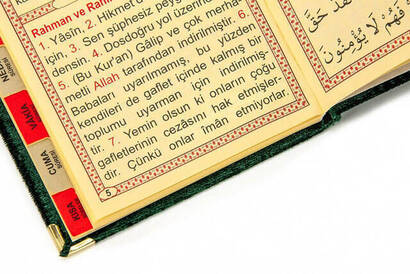 Rahman ve Rah
1. Yâsîn, 2. Hikmet d
için, 3. Sen şüphesiz peyg
densin. 4. Dosdoğru yol üzerin
5. (Bu Kur'an) Gâlip ve çok merha
metli Allah tarafından indirilmiştir. 6.
Babaları uyarılmamış, bu yüzden
kendileri de gaflet içinde kalmış bir
toplumu uyarman için indirilmiş-
tir. 7. Yemin olsun ki onların çoğu
gafletlerinin cezasını hak etmişler-
dir. Çünkü onlar îmân etmiyorlar.
5
فَهُمْ لَا يُؤْمِنُونَ
VAKIA
CUMA
SURESİ
KISA